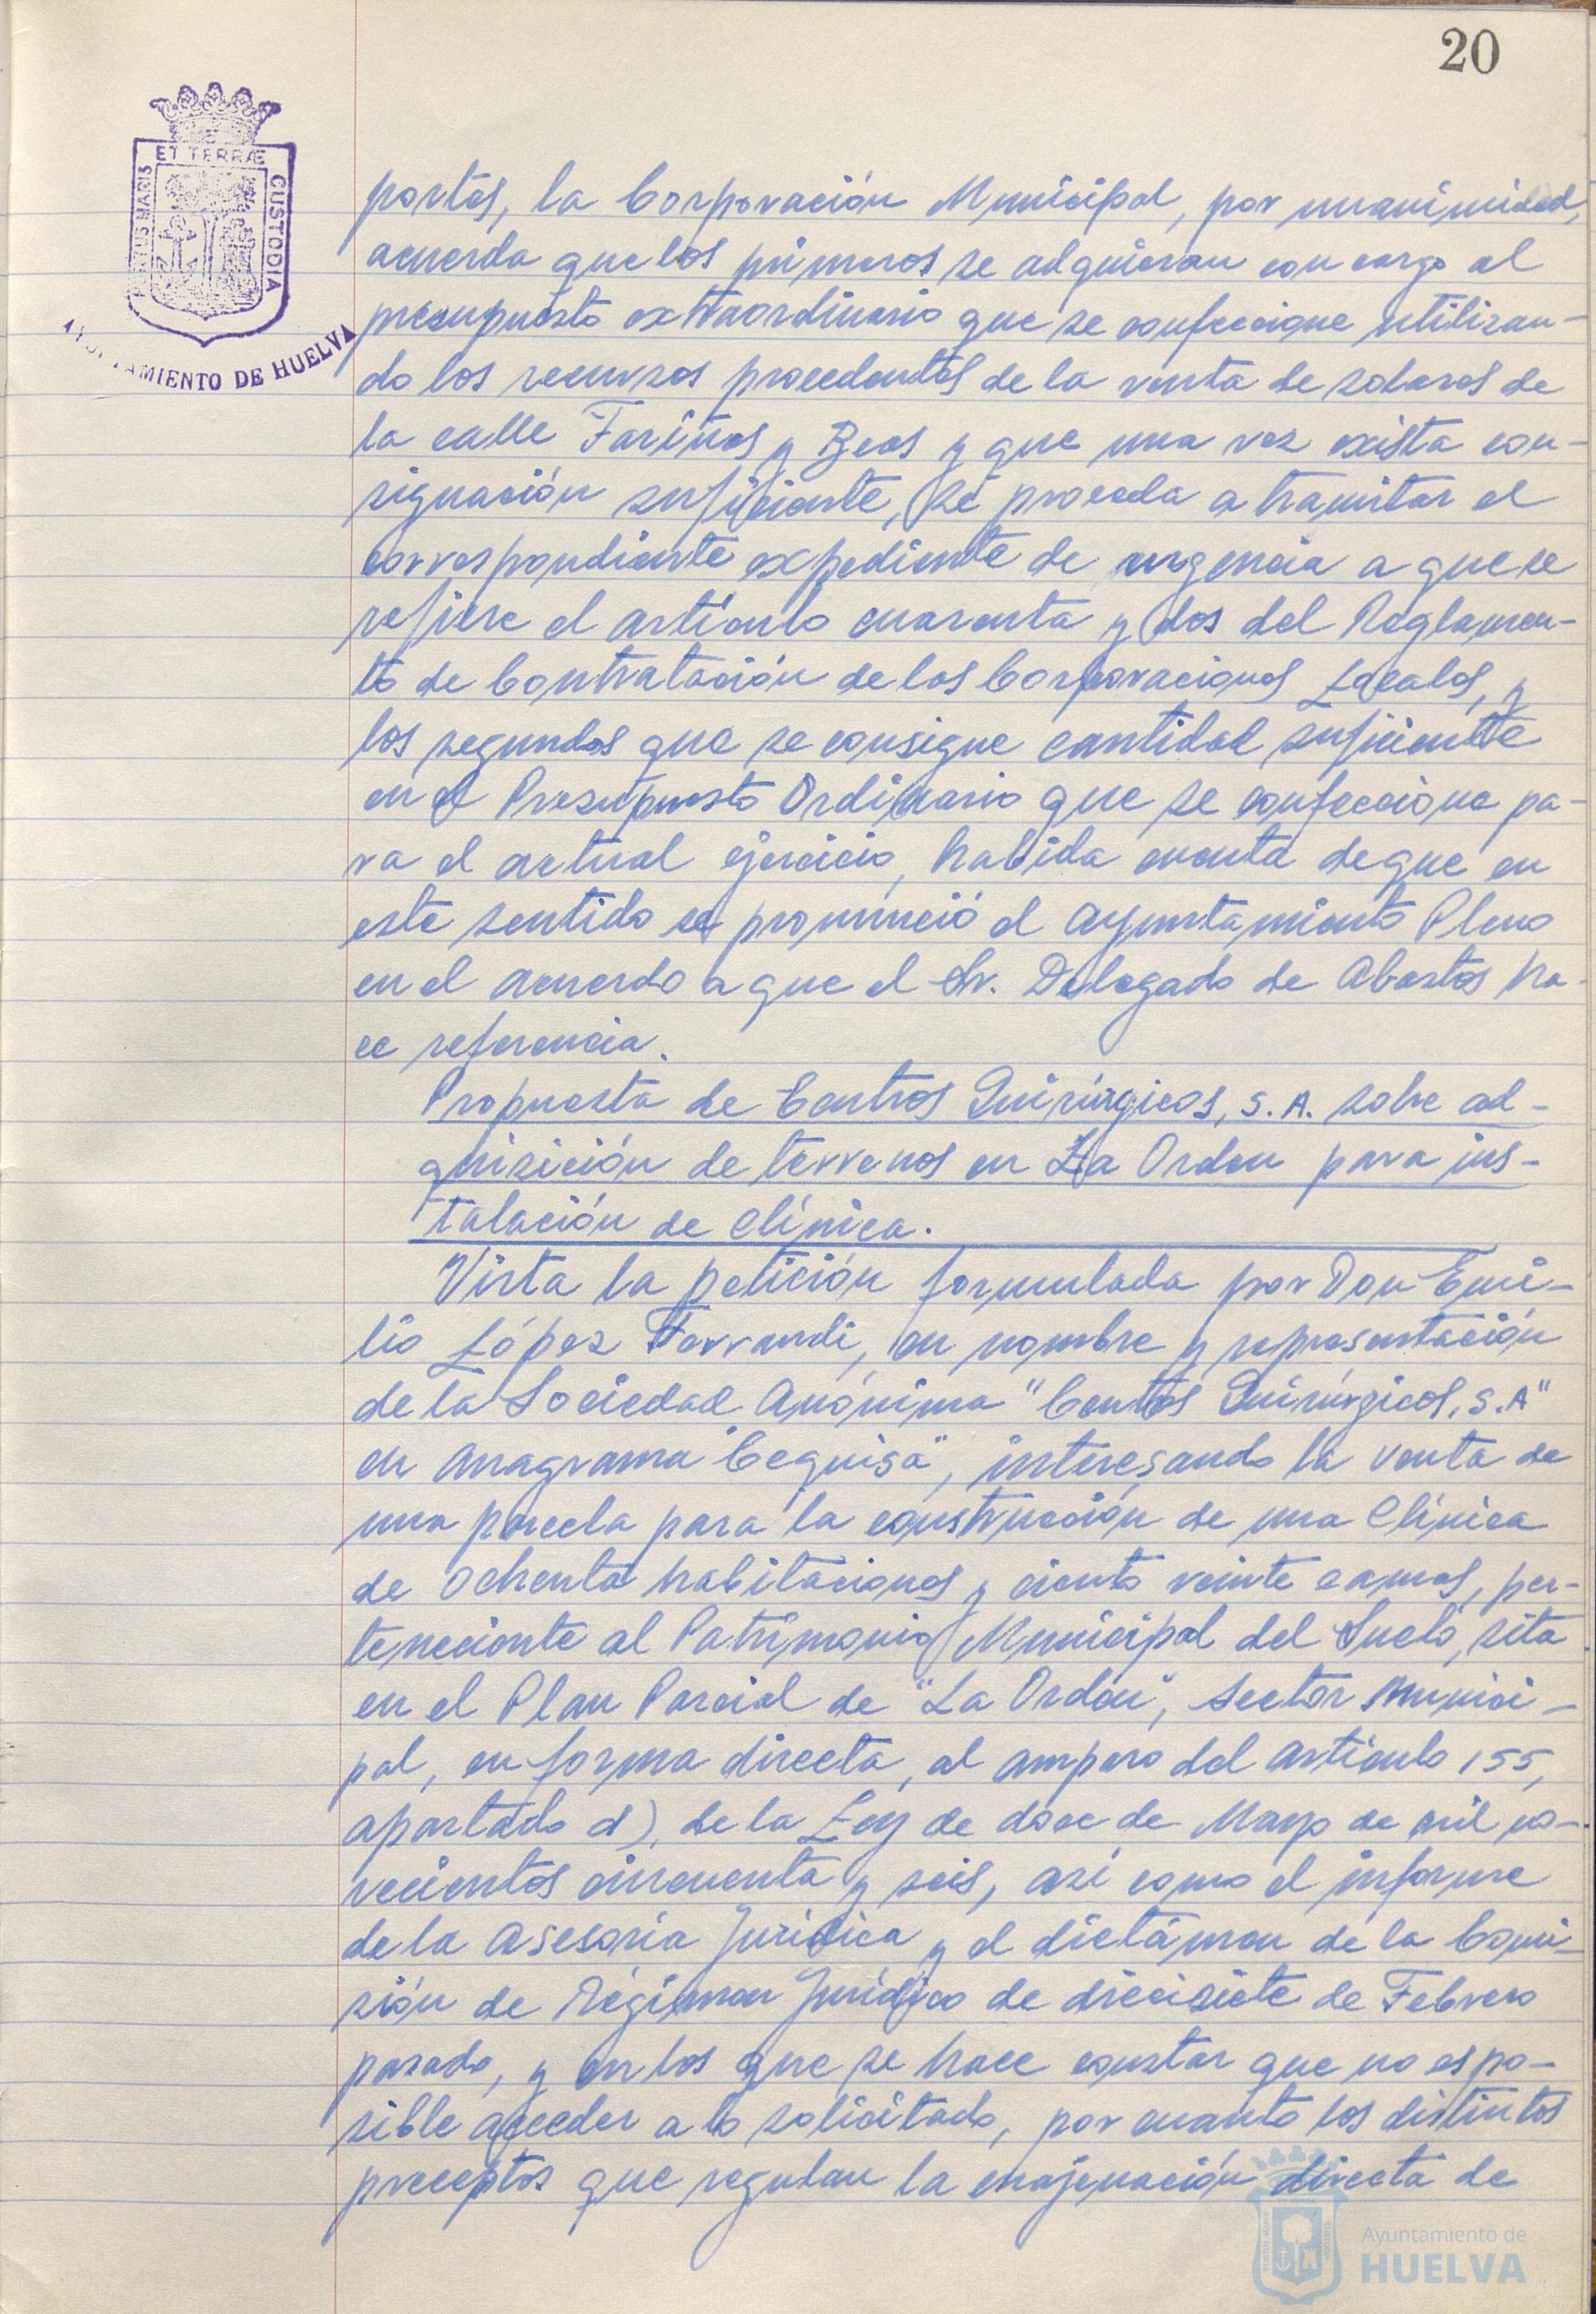 20
ET TERRÆ
PORTUS MARIS
CUSTODIA
AYUNTAMIENTO DE HUELVA
portes, la Corporación Municipal, por unanimidad,
acuerda que los primeros se adquieran con cargo al
presupuesto extraordinario que se confeccione utilizan-
do los recursos procedentes de la venta de solares de
la calle Fariñas y Beas y que una vez exista con-
signación suficiente, se proceda a tramitar el
correspondiente expediente de urgencia a que se
refiere el artículo cuarenta y dos del Reglamen-
to de Contratación de las Corporaciones Locales, y
los segundos que se consigne cantidad suficiente
en el Presupuesto Ordinario que se confeccione pa-
ra el actual ejercicio, habida cuenta de que en
este sentido se pronunció el Ayuntamiento Pleno
en el acuerdo a que el Sr. Delegado de Abastos ha-
ce referencia.
Propuesta de Centros Quirúrgicos, S.A. sobre ad-
quisición de terrenos en La Orden para ins-
talación de Clínica.
Vista la petición formulada por Don Emi-
lio López Ferrandi, en nombre y representación
de la Sociedad Anónima "Centros Quirúrgicos, S.A"
en anagrama "Cequisa", interesando la venta de
una parcela para la construcción de una Clínica
de ochenta habitaciones y ciento veinte camas, per-
teneciente al Patrimonio Municipal del Suelo, sita
en el Plan Parcial de "La Orden", sector Munici-
pal, en forma directa, al amparo del artículo 155,
apartado d), de la Ley de doce de Mayo de mil no-
vecientos cincuenta y seis, así como el informe
de la Asesoría Jurídica y el dictámen de la Comi-
sión de Régimen Jurídico de diecisiete de Febrero
pasado, y en los que se hace constar que no es po-
sible acceder a lo solicitado, por cuanto los distintos
preceptos que regulan la enajenación directa de
Ayuntamiento de
HUELVA